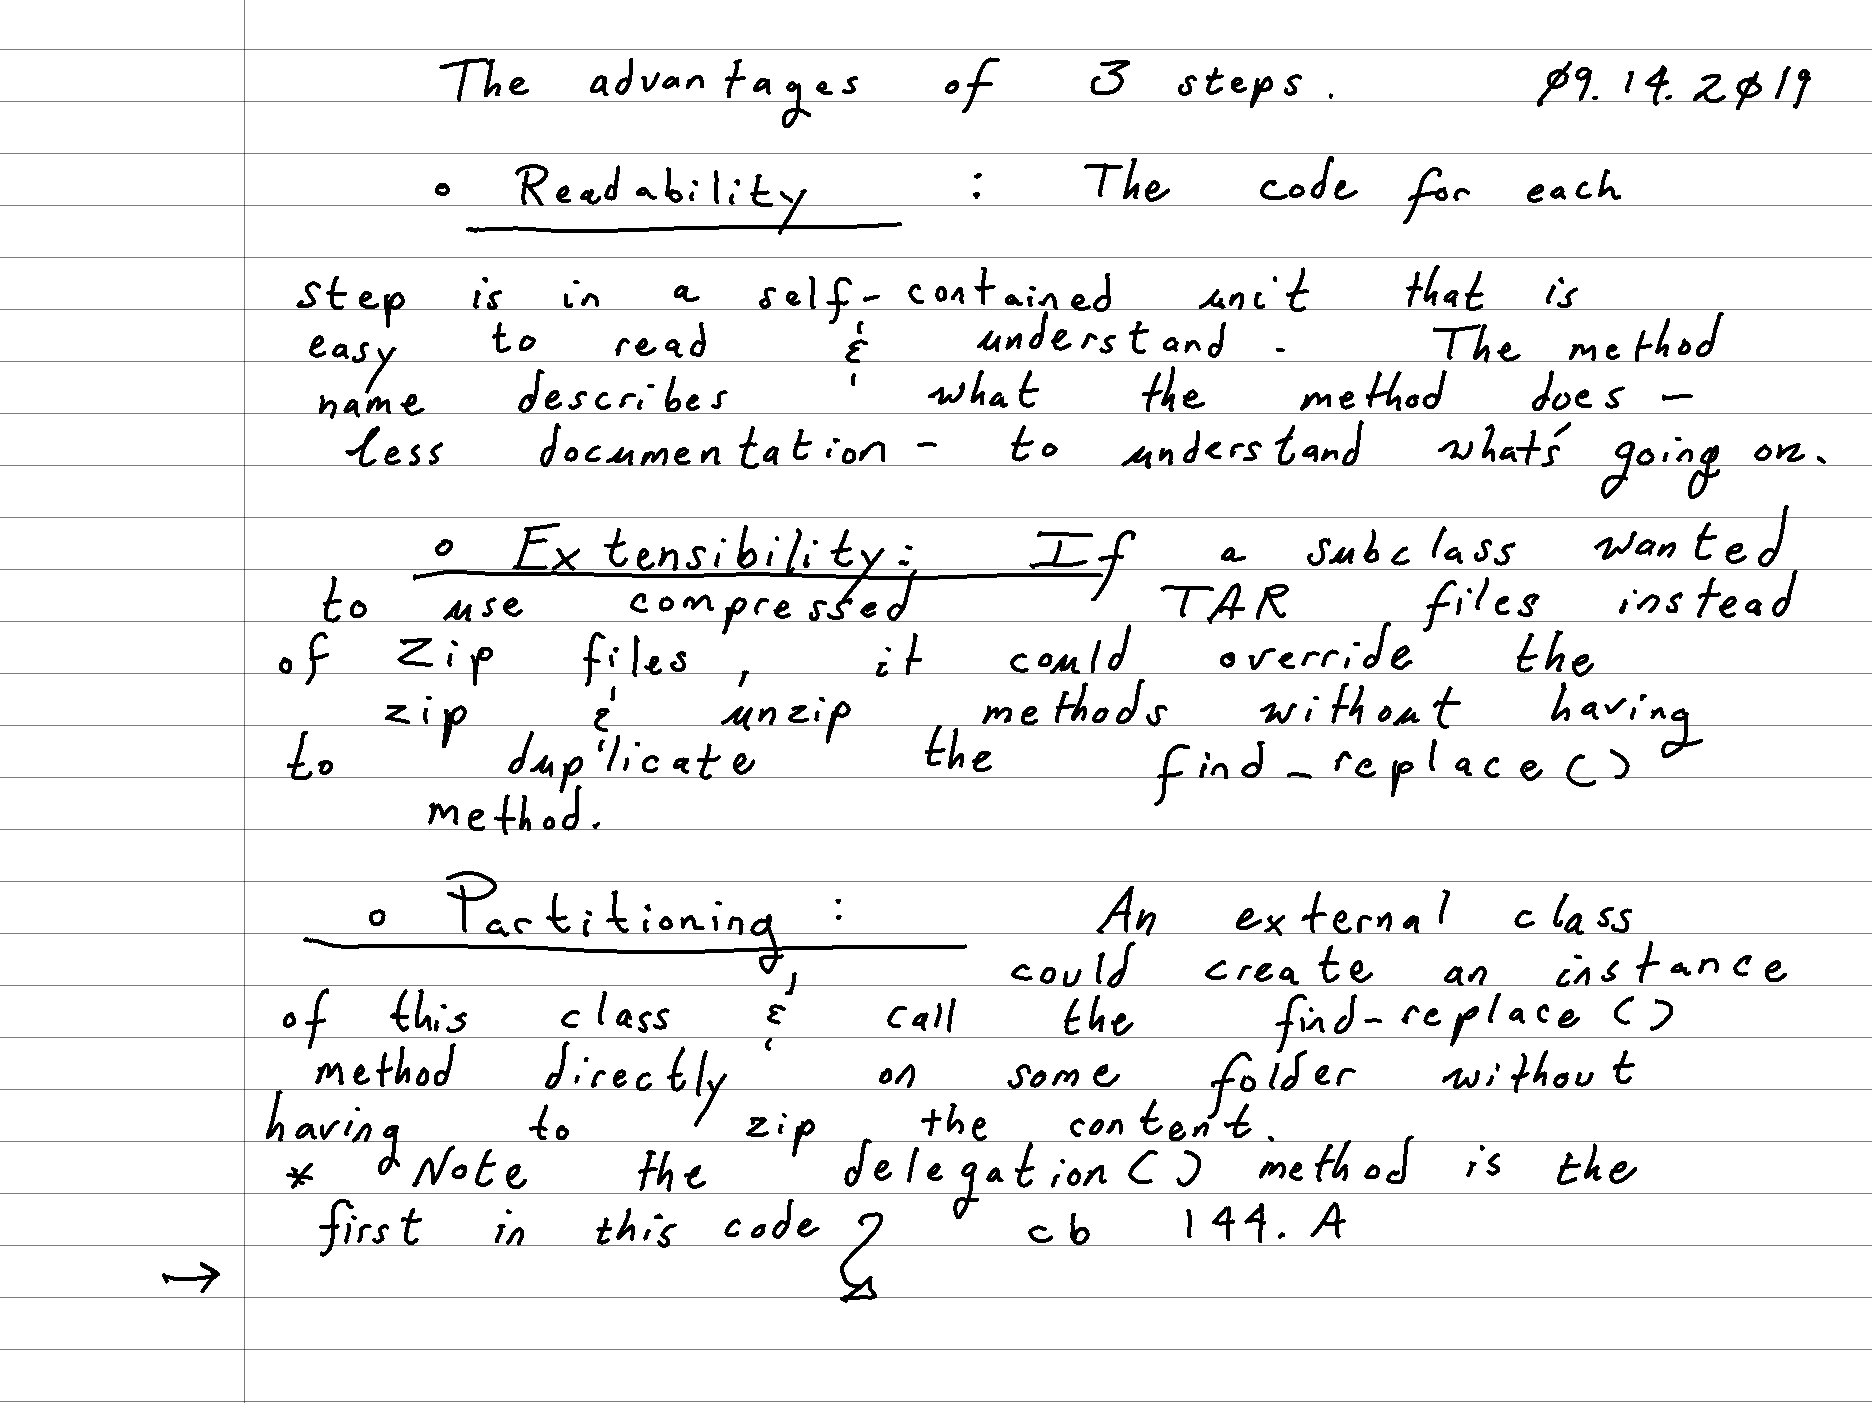 The advantages of 3 steps. 09.14.2019
• Readability : The code for each
step is in a self-contained unit that is
easy to read & understand. The method
name describes what the method does -
less documentation - to understand what's going on.
• Extensibility: If a subclass wanted
to use compressed TAR files instead
of Zip files, it could override the
zip & unzip methods without having
to duplicate the find_replace()
method.
• Partitioning : An external class
could create an instance
of this class & call the find-replace()
method directly on some folder without
having to zip the content.
* Note the delegation() method is the
first in this code cb 144.A
→